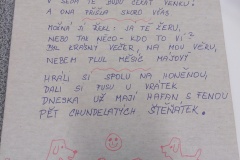 V SEDM TĚ BUDU ČEKAT FENKU.
A ONA PŘIŠLA SKORO VČAS
MOŽNÁ JÍ ŘEKL: JÁ TĚ ŽERU,
NEBO TAK NĚCO - KDO TO VÍ?
BYL KRÁSNÝ VEČER, NA MOU VĚRU,
NEBEM PLUL MĚSÍC MÁJOVÝ
HRÁLI SI SPOLU NA HONĚNOU,
DALI SI PUSU U VRÁTEK
DNESKA UŽ MAJÍ HAFAN S FENOU
PĚT CHUNDELATÝCH ŠTĚŇÁTEK.